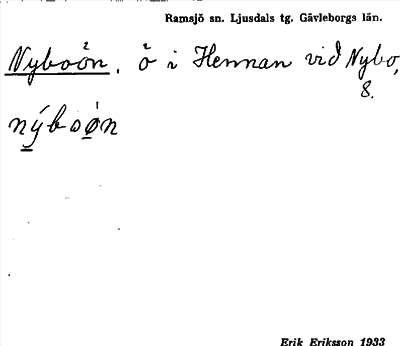 Ramsjö sn. Ljusdals tg. Gävleborgs län.
Nyboön. ö i Hennan vid Nybo,
8.
nýboǿn
Erik Eriksson 1933